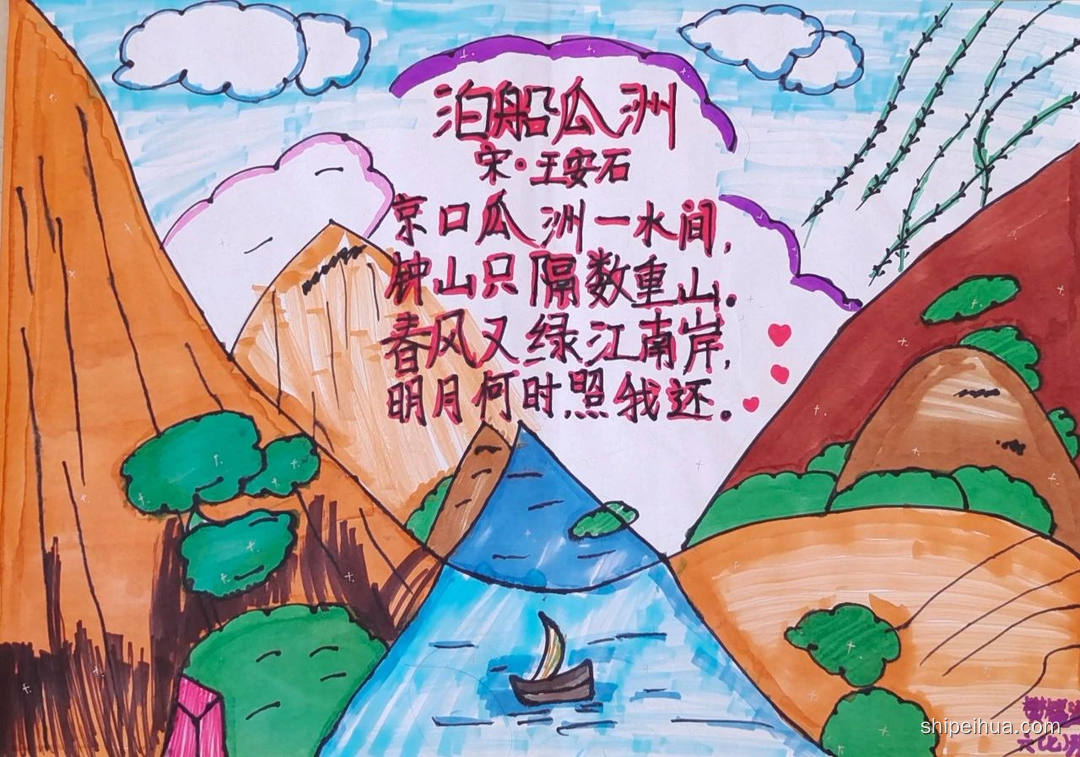 泊船瓜洲
宋·王安石
京口瓜洲一水间,
钟山只隔数重山。
春风又绿江南岸,
明月何时照我还。
shipeihua.com